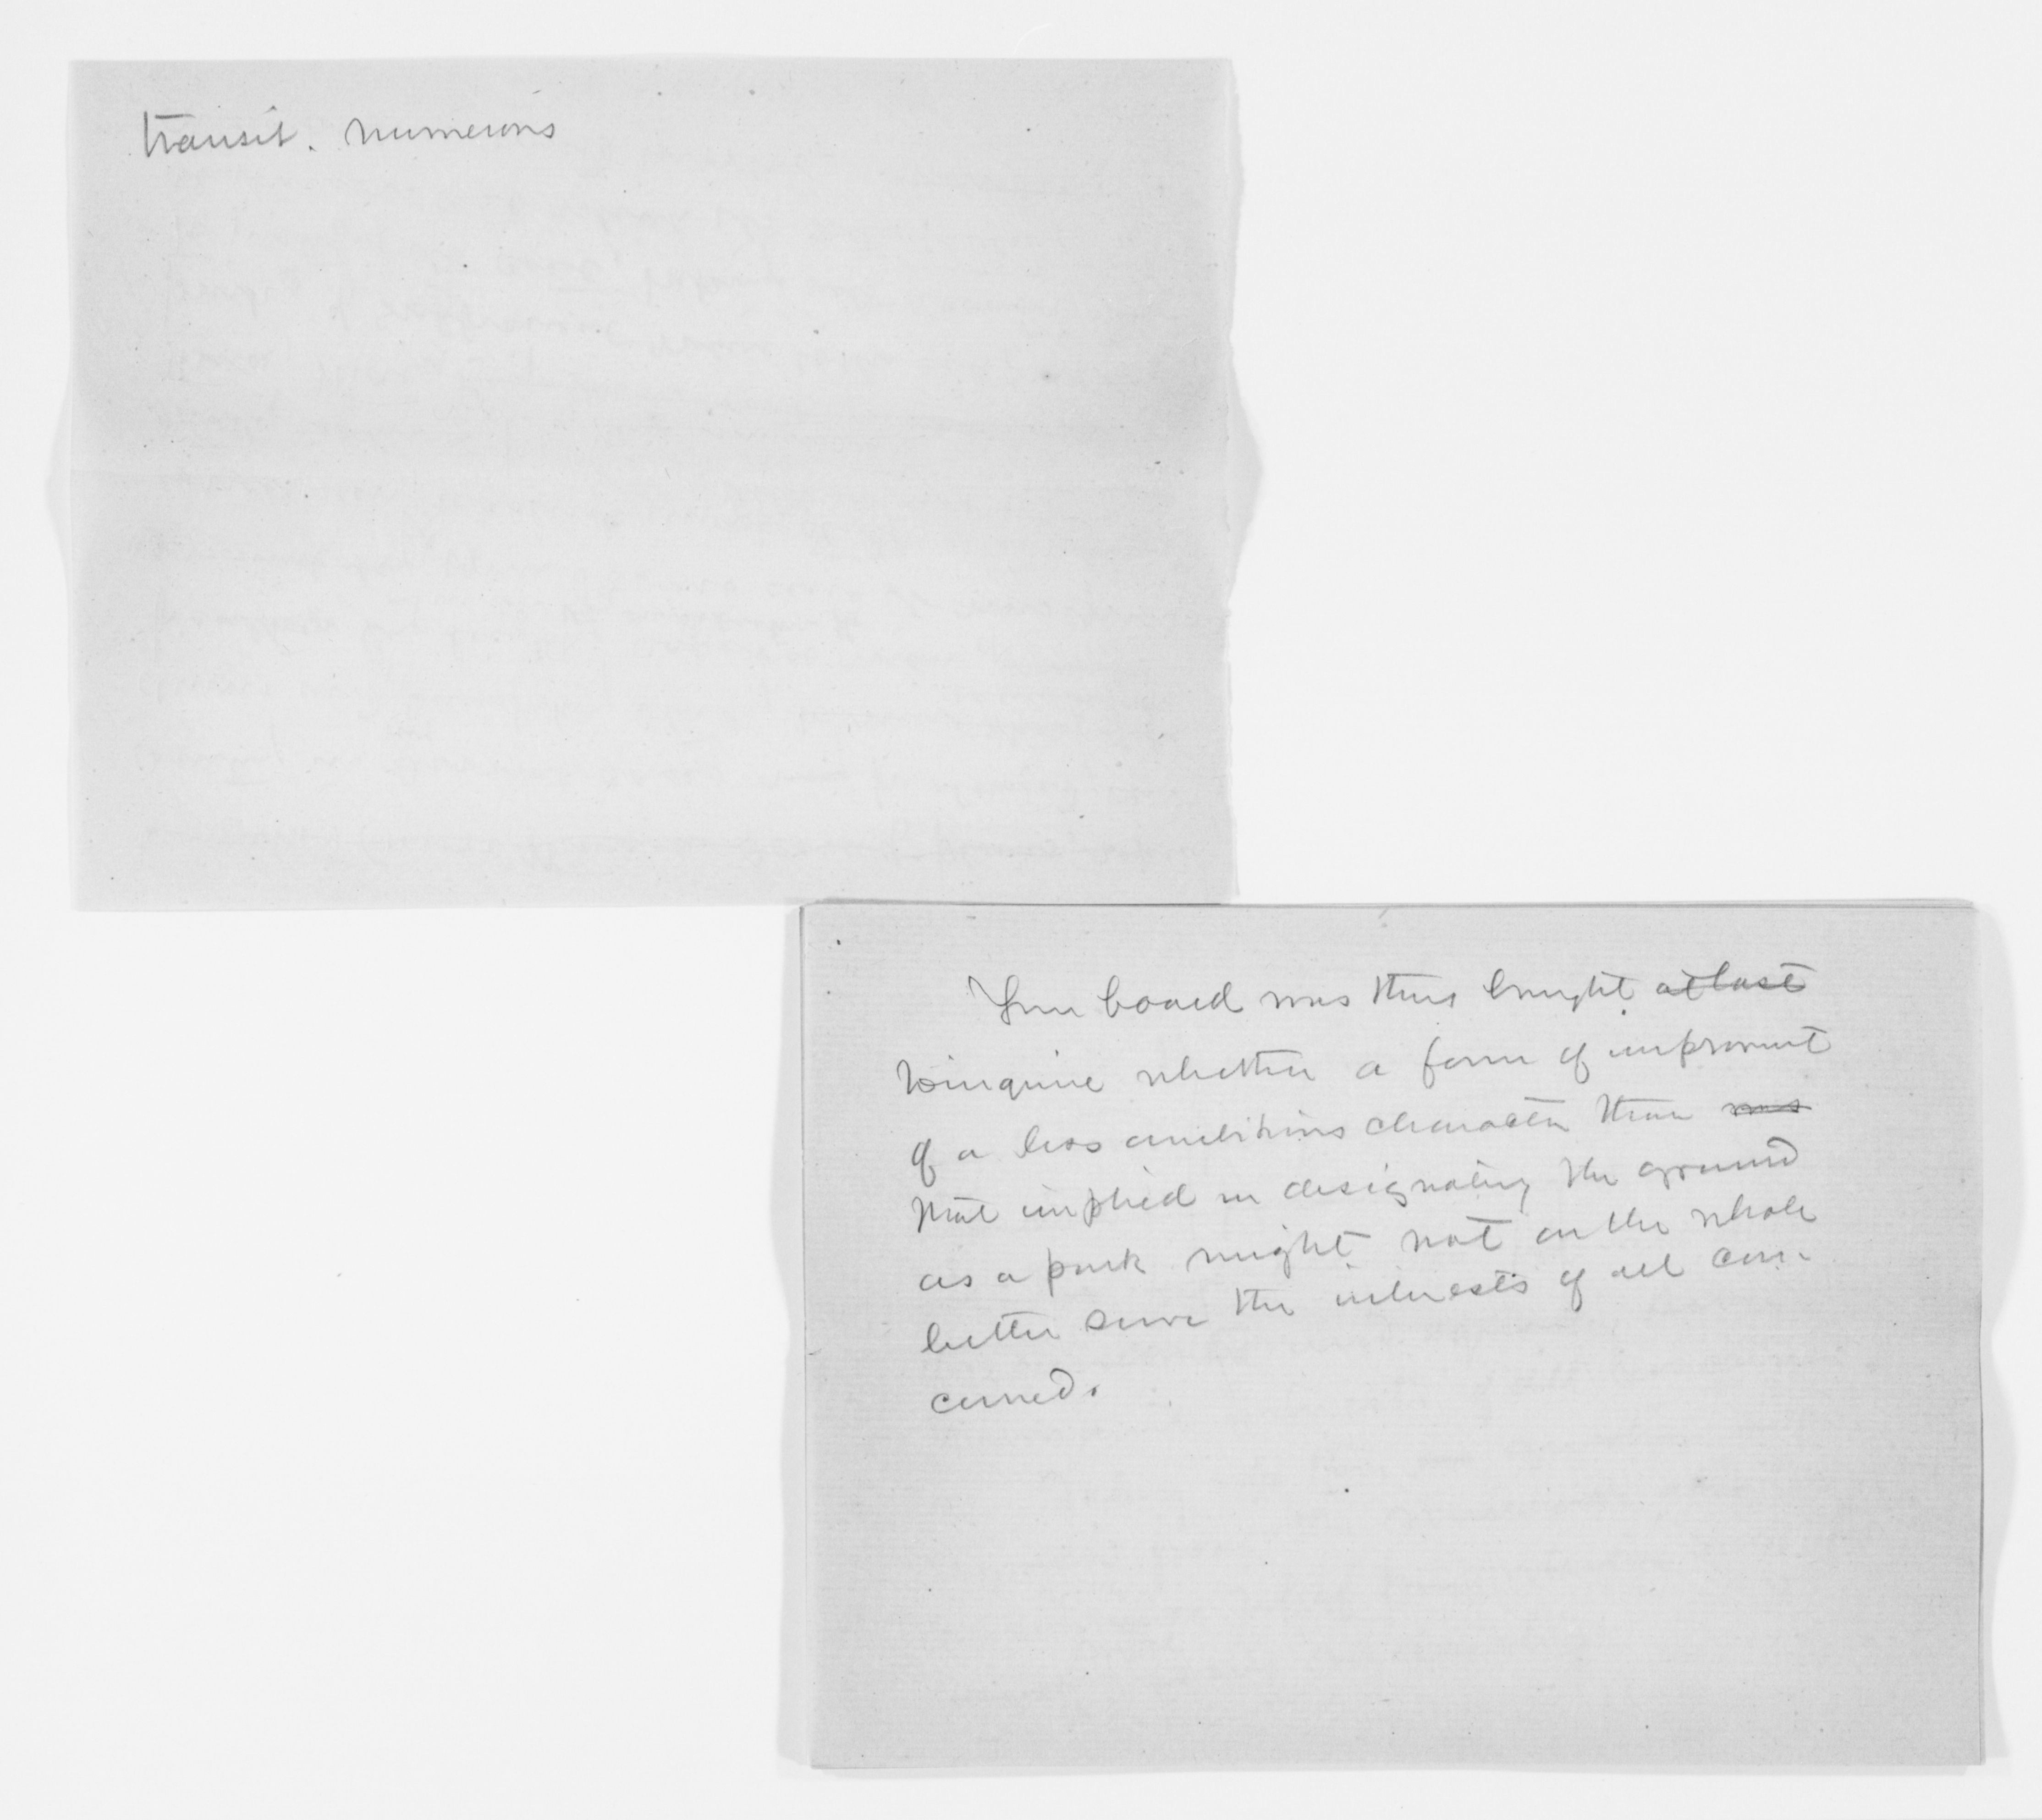 transit. numerous
Your board was thus brought at last
to inquire whether a form of improvmt
of a less ambitious character than was
that implied in designating the ground
as a park might not on the whole
better serve the interests of all con-
cerned.